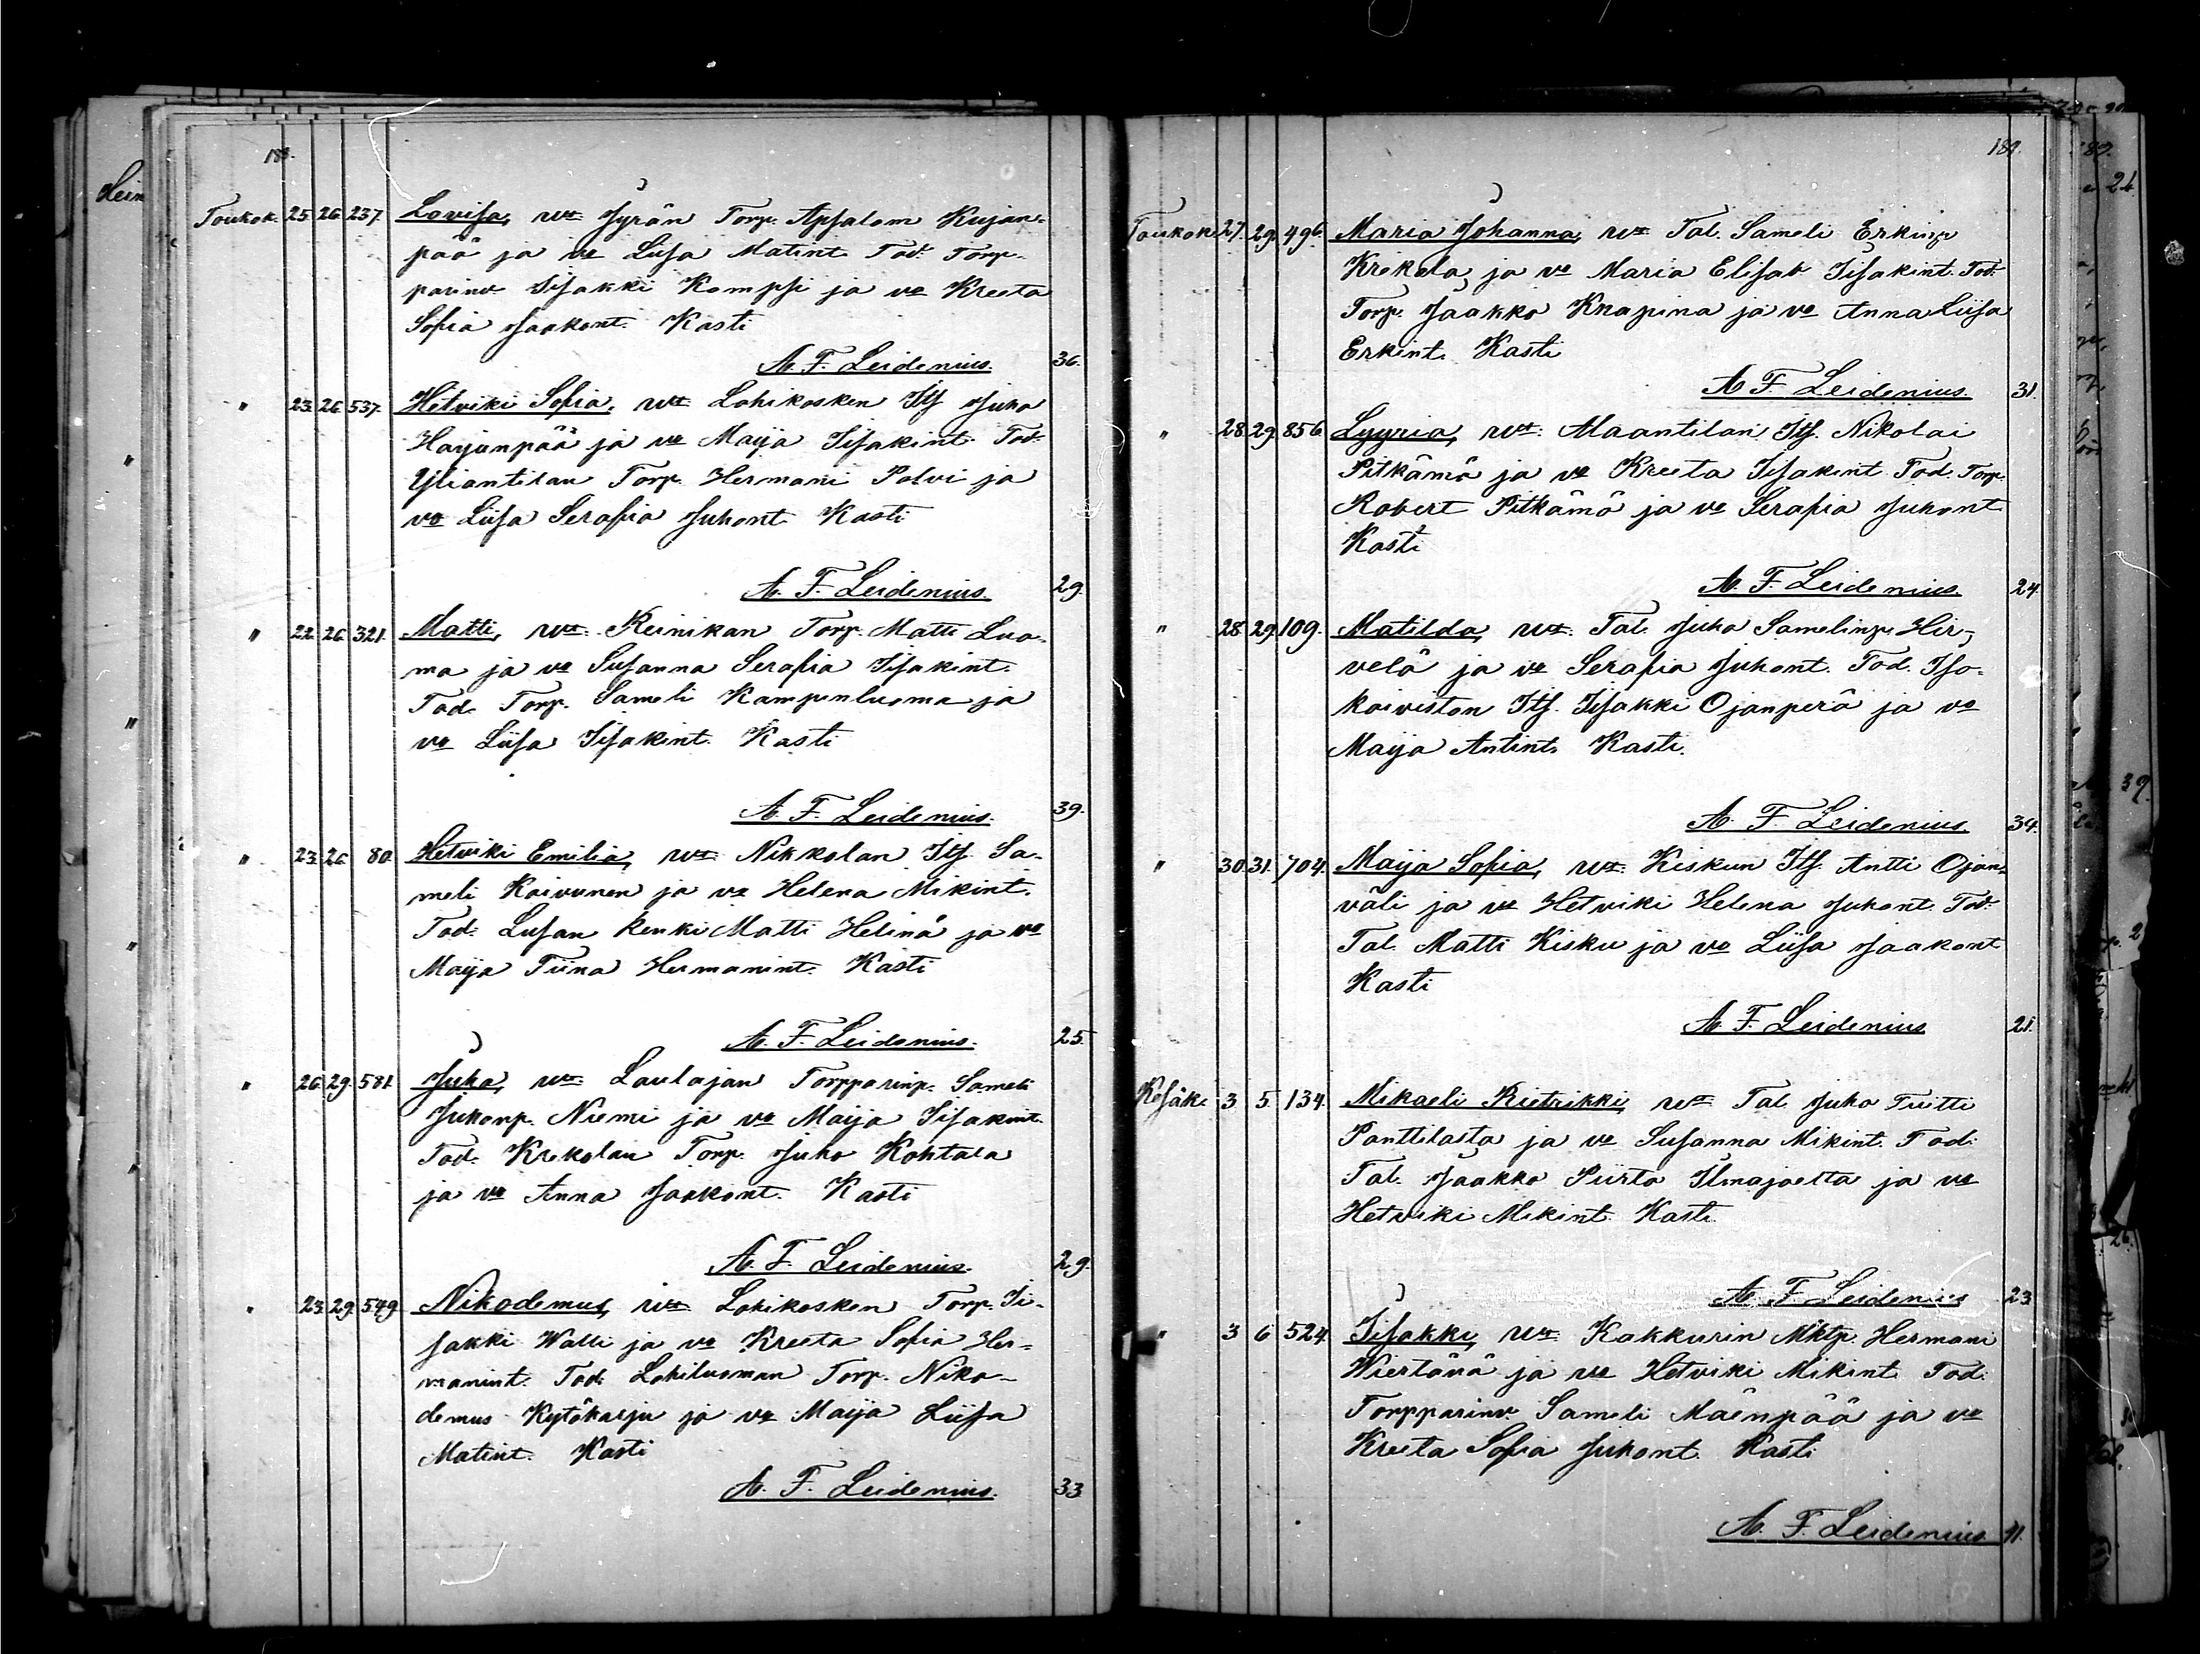 188.
Toukok. 25. 26. 237. Lovisa, vt. Jyrän Torp. Apsalom Kujan-
pää ja vo Liisa Matint. Tod. Torp-
parinv. Iisakki Komppi ja vo Kreeta
Sofia Jaakont. Kasti
A. F. Leidenius. 36.
" 23. 26. 537. Hetviki Sofia, vt. Lohikosken Its. Juho
Harjunpää ja vo Maija Iisakint. Tod.
Yliantilan Torp. Hermani Polvi ja
vo Liisa Serafia Juhont. Kasti
A. F. Leidenius. 29.
" 22. 26. 321. Matti, vt. Reinikan Torp. Matti Luo-
ma ja vo Susanna Serafia Iisakint.
Tod. Torp. Sameli Kampinluoma ja
vo Liisa Iisakint. Kasti
A. F. Leidenius. 39.
" 23. 26. 80. Hetviki Emilia, vt. Nikkolan Its. Sa-
meli Koivunen ja vo Helena Mikint.
Tod. Lusan Renki Matti Helinä ja vo
Maija Tiina Hermanint. Kasti
A. F. Leidenius. 25.
" 26. 29. 581. Juho, vt. Laulajan Torpparinp. Sameli
Juhonp. Niemi ja vo Maija Iisakint.
Tod. Krekolan Torp. Juho Kohtala
ja vo Anna Jaakont. Kasti
A. F. Leidenius. 29.
" 23. 29. 549. Nikodemus, vt. Lohikosken Torp. Ii-
sakki Walli ja vo Kreeta Sofia Her-
manint. Tod. Lohiluoman Torp. Niko-
demus Kytökarju ja vo Maija Liisa
Matint. Kasti
A. F. Leidenius. 33
189.
Toukok. 27. 29. 496. Maria Johanna, vt. Tal. Sameli Erkinp.
Krekola, ja vo Maria Elisab. Iisakint. Tod.
Torp. Jaakko Knapina ja vo Anna Liisa
Erkint. Kasti
A. F. Leidenius. 31.
" 28. 29. 856. Lyyria, vt. Maantilan Its. Nikolai
Pitkämö ja vo Kreeta Iisakint. Tod. Torp.
Robert Pitkämö ja vo Serafia Juhont.
Kasti
A. F. Leidenius. 24.
" 28. 29. 109. Matilda, vt. Tal. Juho Samelinp. Hir-
velä ja vo Serafia Juhont. Tod. Iso-
koiviston Its. Iisakki Ojanperä ja vo
Maija Antint. Kasti.
A. F. Leidenius. 34.
" 30. 31. 704. Maija Sofia, vt. Kiskun Its. Antti Ojan-
väli ja vo Hetviki Helena Juhont. Tod.
Tal. Matti Kisku ja vo Liisa Jaakont.
Kasti
A. F. Leidenius 21.
Kesäk. 3 5. 134. Mikaeli Rietrikki, vt. Tal. Juho Tuitti
Panttilasta ja vo Susanna Mikint. Tod.
Tal. Jaakko Piirto Ilmajoelta ja vo
Hetviki Mikint. Kasti.
A. F. Leidenius 23
" 3 6 524. Iisakki, vt. Kakkurin Mktp. Hermani
Wiertävä ja vo Hetviki Mikint. Tod.
Torpparinv. Sameli Mäenpää ja vo
Kreeta Sofia Juhont. Kasti
A. F. Leidenius 41.